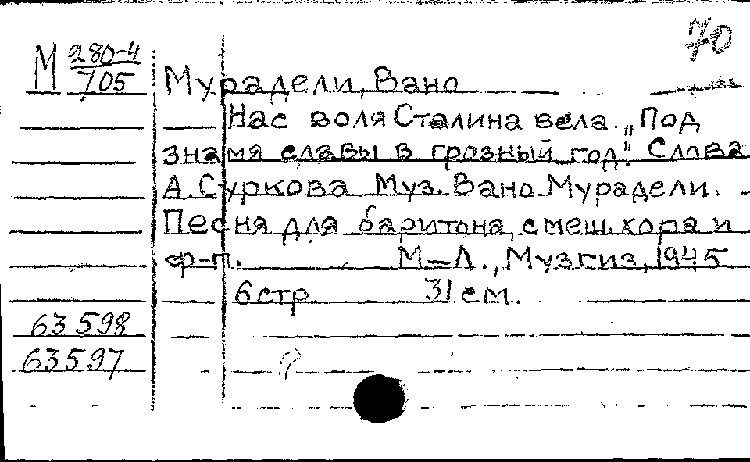 70
М 280-4
705
Мурадели, Вано
Нас воля Сталина вела. „Под
знамя славы в грозный год". Слова
А. Суркова Муз. Вано Мурадели.
Песня для баритона, смеш. хора и
ф-п. М-Л., Музгиз, 1945
6 стр 31 см.
63598
63597